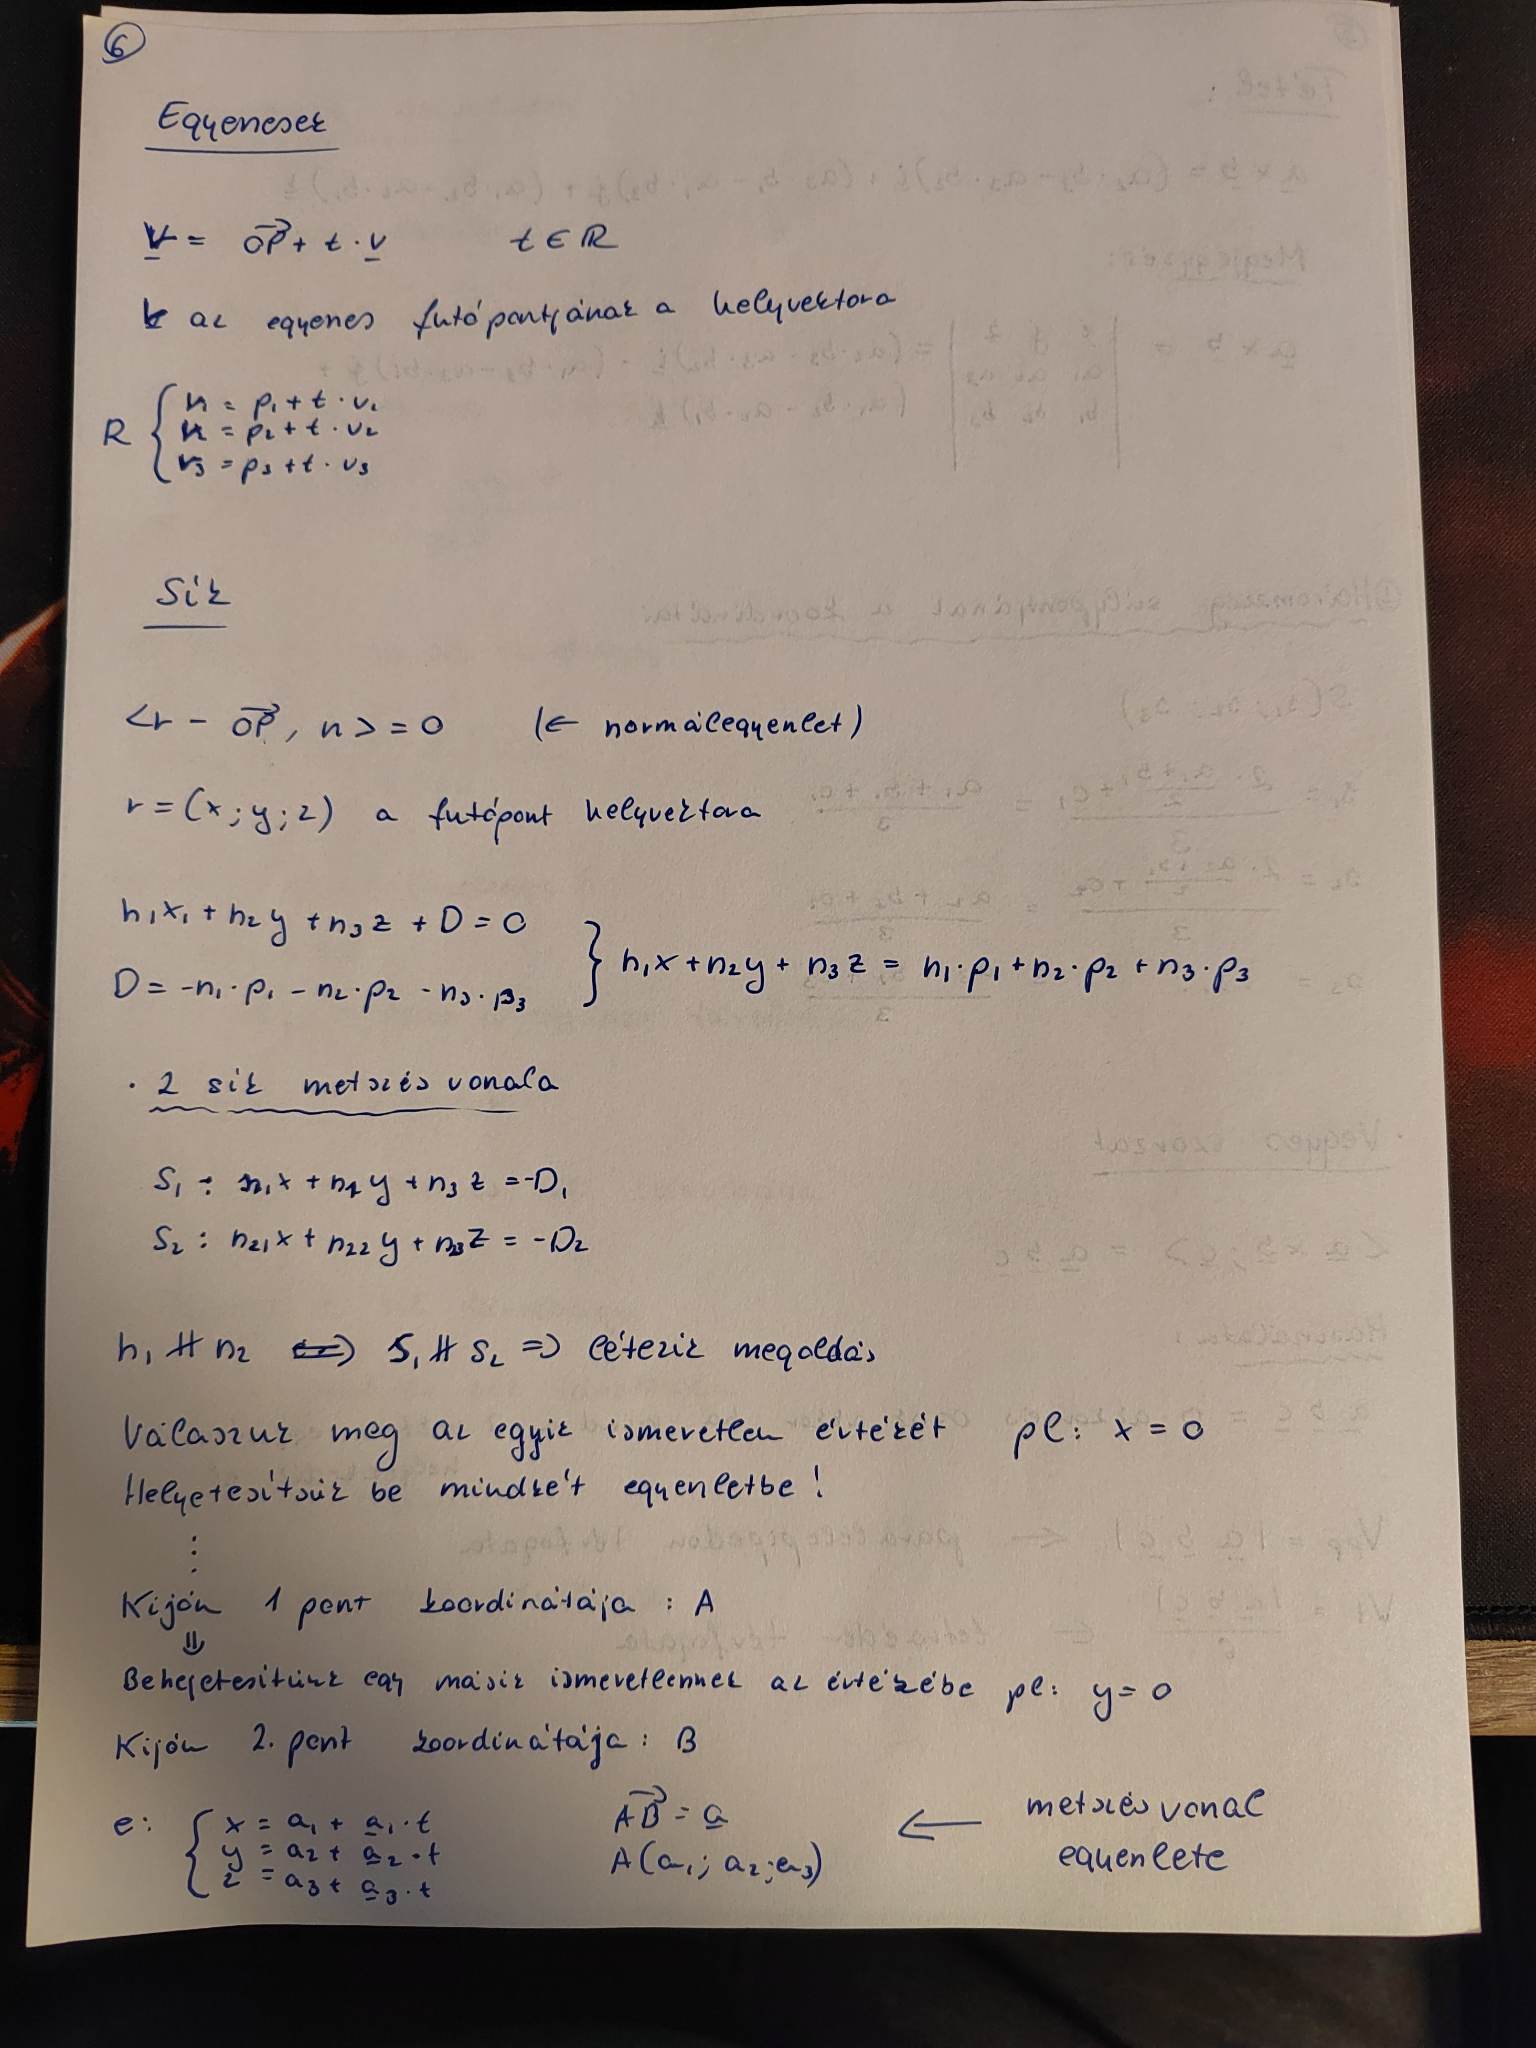 6
Egyenesek
r = OP + t · v t ∈ R
r az egyenes futópontjának a helyvektora
R { r₁ = p₁ + t · v₁
r₂ = p₂ + t · v₂
r₃ = p₃ + t · v₃
Sík
<r - OP, n> = 0 (← normálegyenlet)
r = (x; y; z) a futópont helyvektora
n₁x₁ + n₂y + n₃z + D = 0
D = -n₁·p₁ - n₂·p₂ - n₃·p₃ } n₁x + n₂y + n₃z = n₁·p₁ + n₂·p₂ + n₃·p₃
· 2 sík metszésvonala
S₁ : n₁x + n₂y + n₃z = -D₁
S₂ : n₂₁x + n₂₂y + n₂₃z = -D₂
n₁ ∦ n₂ <=> S₁ ∦ S₂ => létezik megoldás
Válaszuk meg az egyik ismeretlen értékét pl: x = 0
Helyetesítsük be mindkét egyenletbe!
⋮
Kijön 1 pont koordinátája : A
⇓
Behejetesítünk egy másik ismeretlennek az értékébe pl: y = 0
Kijön 2. pont koordinátája : B
e: { x = a₁ + a₁·t AB = a ← metszésvonal
y = a₂ + a₂·t A(a₁; a₂; a₃) egyenlete
z = a₃ + a₃·t